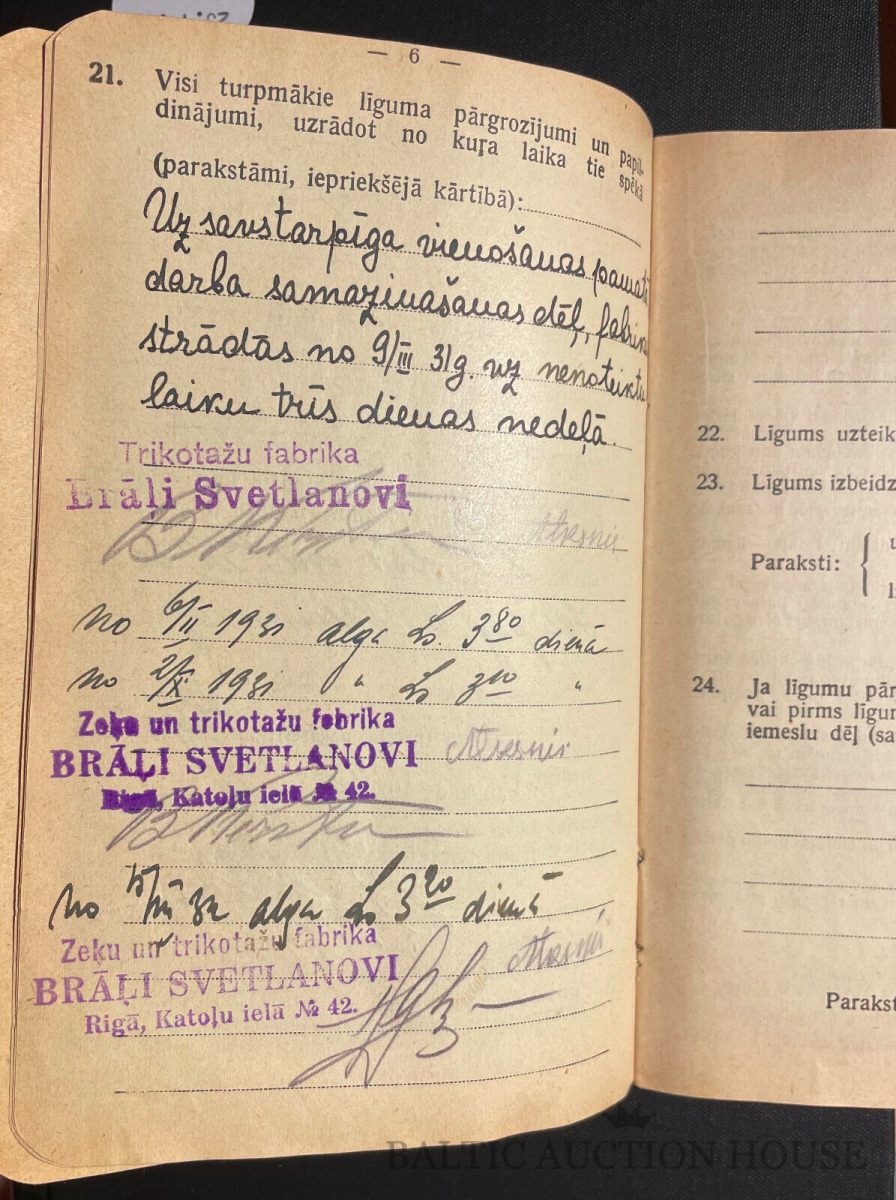 — 6 —
21. Visi turpmākie līguma pārgrozījumi un papil-
dinājumi, uzrādot no kuŗa laika tie spēkā
(parakstāmi, iepriekšējā kārtībā):
Uz savstarpīga vienošanas pamata
darba samazinašanas dēļ, fabrika
strādās no 9/III 31g. uz nenoteiktu
laiku trīs dienas nedeļā.
Trikotažu fabrika
Brāļi Svetlanovi
no 6/II 1931 alga Ls 3 80 dienā
no 2/X 1931 " Ls 3 40 "
Zeķu un trikotažu fabrika
BRĀĻI SVETLANOVI
Rigā, Katoļu ielā № 42.
no 32 alga Ls 3 20 dienā
Zeķu un trikotažu fabrika
BRĀĻI SVETLANOVI
Rigā, Katoļu ielā № 42.
22. Līgums uzteik
23. Līgums izbeidz
Paraksti: {
24. Ja līgumu pār
vai pirms līgur
iemeslu dēļ (sa
Parakst
BALTIC AUCTION HOUSE